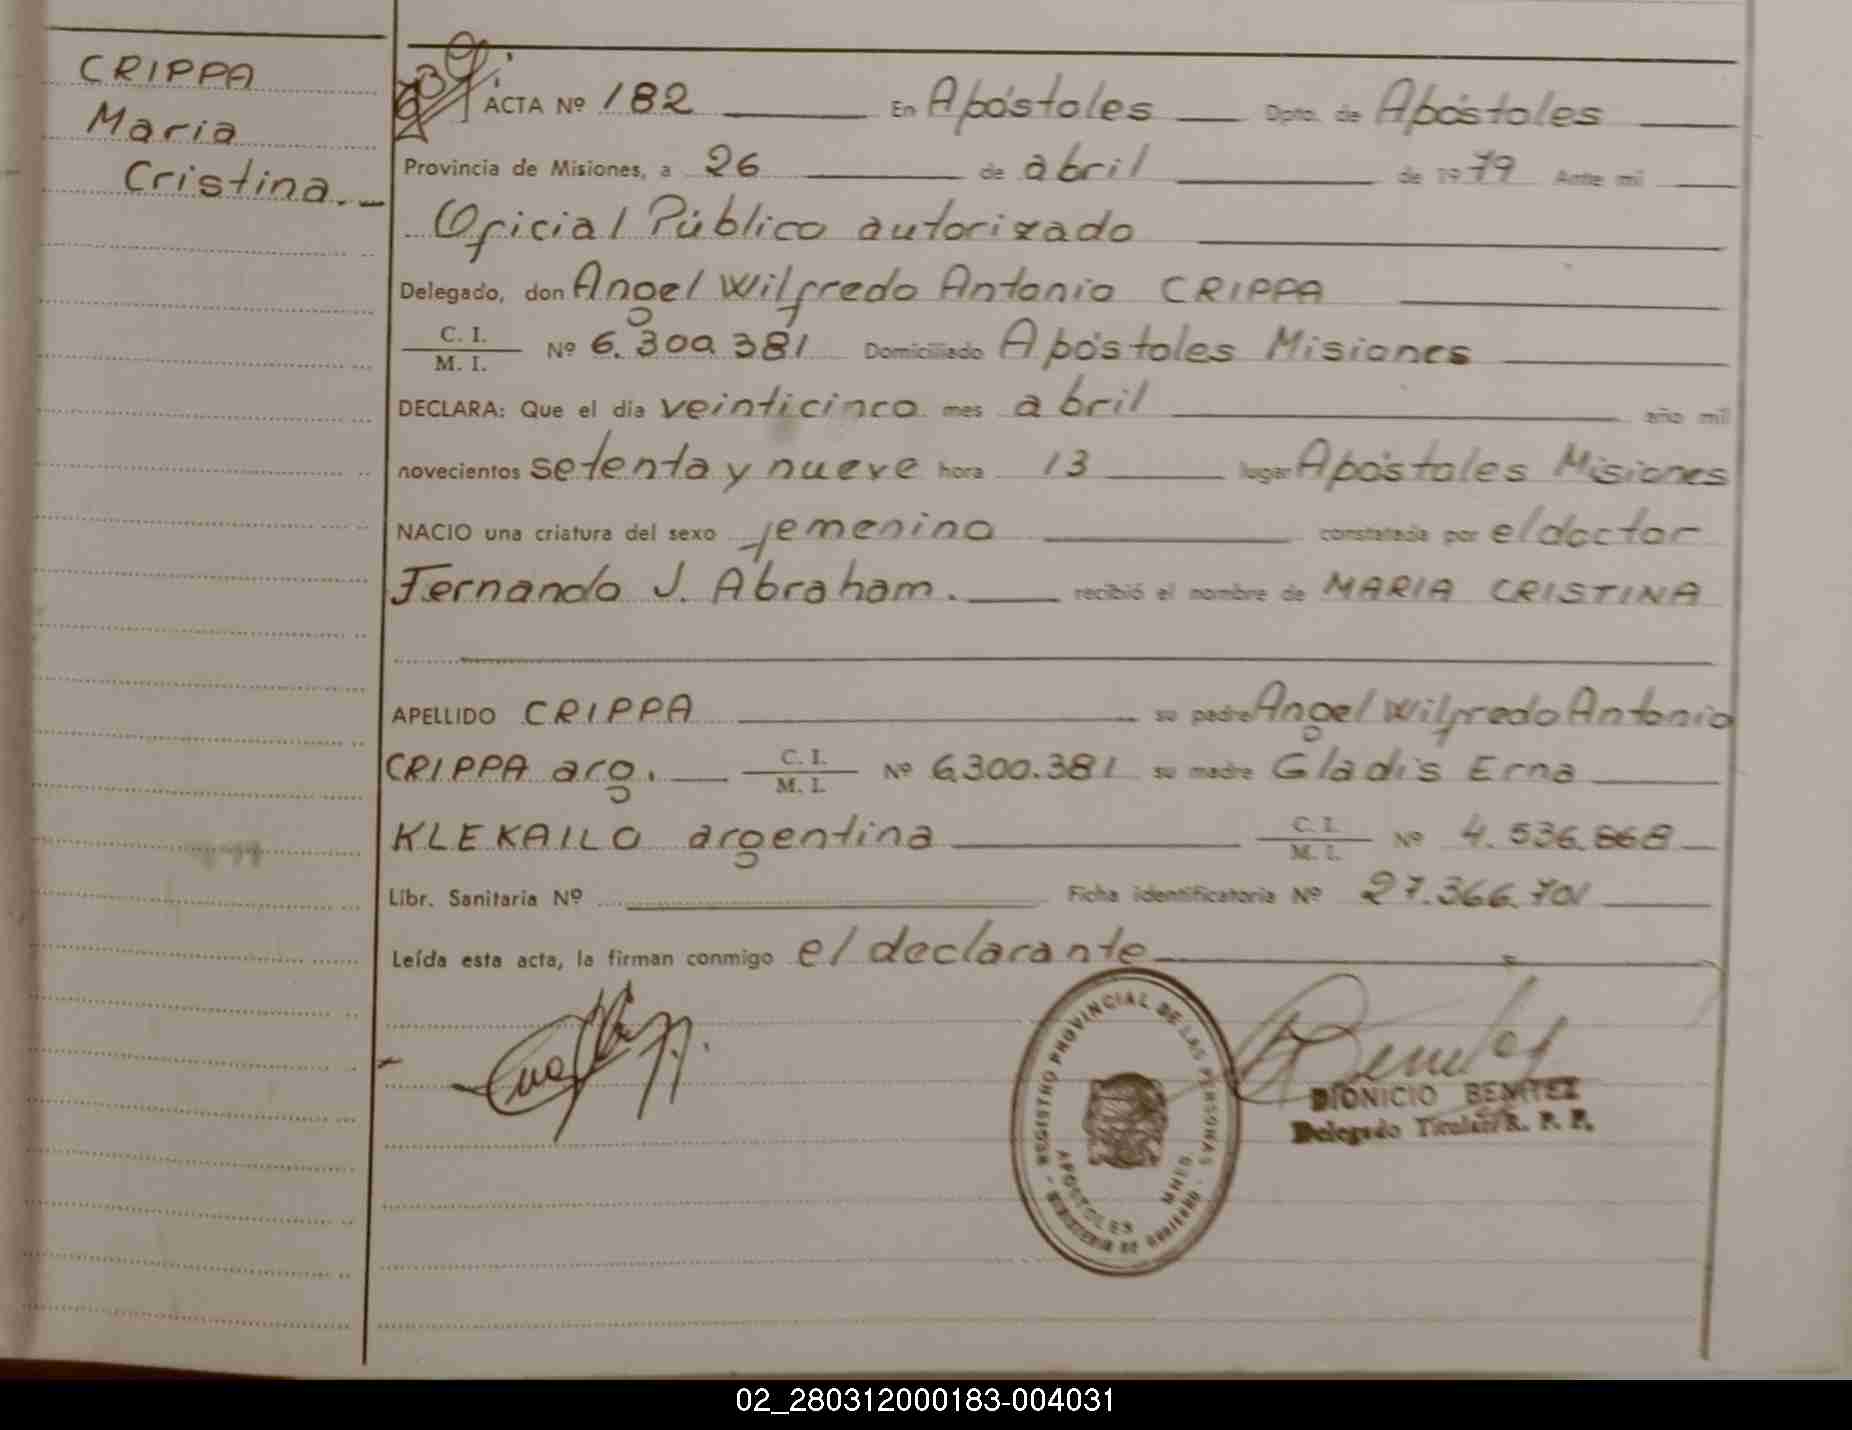 CRIPPA
Maria
Cristina.
ACTA Nº 182 En Apóstoles Dpto. de Apóstoles
Provincia de Misiones, a 26 de abril de 1979 Ante mi
Oficial Público autorizado
Delegado, don Angel Wilfredo Antonio CRIPPA
C. I.
M. I. Nº 6.300.381 Domiciliado Apóstoles Misiones
DECLARA: Que el día veinticinco mes abril año mil
novecientos setenta y nueve hora 13 lugar Apóstoles Misiones
NACIO una criatura del sexo femenino constatada por el doctor
Fernando J. Abraham. recibió el nombre de MARIA CRISTINA
APELLIDO CRIPPA su padre Angel Wilfredo Antonio
CRIPPA arg. C. I. M. I. Nº 6.300.381 su madre Gladis Erna
KLEKAILO argentina C. I. M. I. Nº 4.536.868
Libr. Sanitaria Nº Ficha identificatoria Nº 27.366.701
Leída esta acta, la firman conmigo el declarante
REGISTRO PROVINCIAL DE LAS PERSONAS
APOSTOLES MNES.
MINISTERIO DE GOBIERNO
DIONICIO BENITEZ
Delegado Titular R. P. P.
02_280312000183-004031